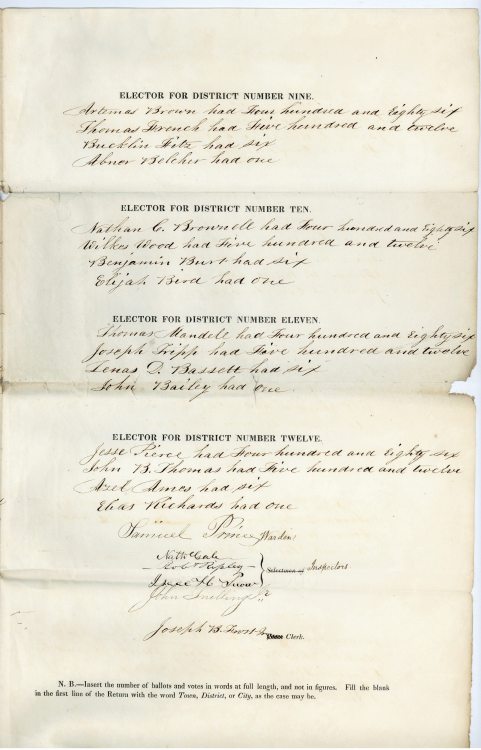 ELECTOR FOR DISTRICT NUMBER NINE.
Artemas Brown had Four hundred and Eighty six
Thomas French had Five hundred and twelve
Bucklin Fitz had six
Abner Belcher had one
ELECTOR FOR DISTRICT NUMBER TEN.
Nathan C. Brownell had Four hundred and Eighty six
Wilkes Wood had Five hundred and twelve
Benjamin Burt had six
Elijah Bird had one
ELECTOR FOR DISTRICT NUMBER ELEVEN.
Thomas Mandell had Four hundred and Eighty six
Joseph Tripp had Five hundred and twelve
Zenas D. Bassett had six
John Bailey had one
ELECTOR FOR DISTRICT NUMBER TWELVE.
Jesse Pierce had Four hundred and Eighty six
John B. Thomas had Five hundred and twelve
Azel Ames had six
Elias Richards had one
Samuel Prince Warden
Nath Hale
Rob Ripley Selectmen of Inspectors
Isaac H Snow
John Snelling
Joseph B. Frost Jr Clerk.
N. B.—Insert the number of ballots and votes in words at full length, and not in figures. Fill the blank
in the first line of the Return with the word Town, District, or City, as the case may be.